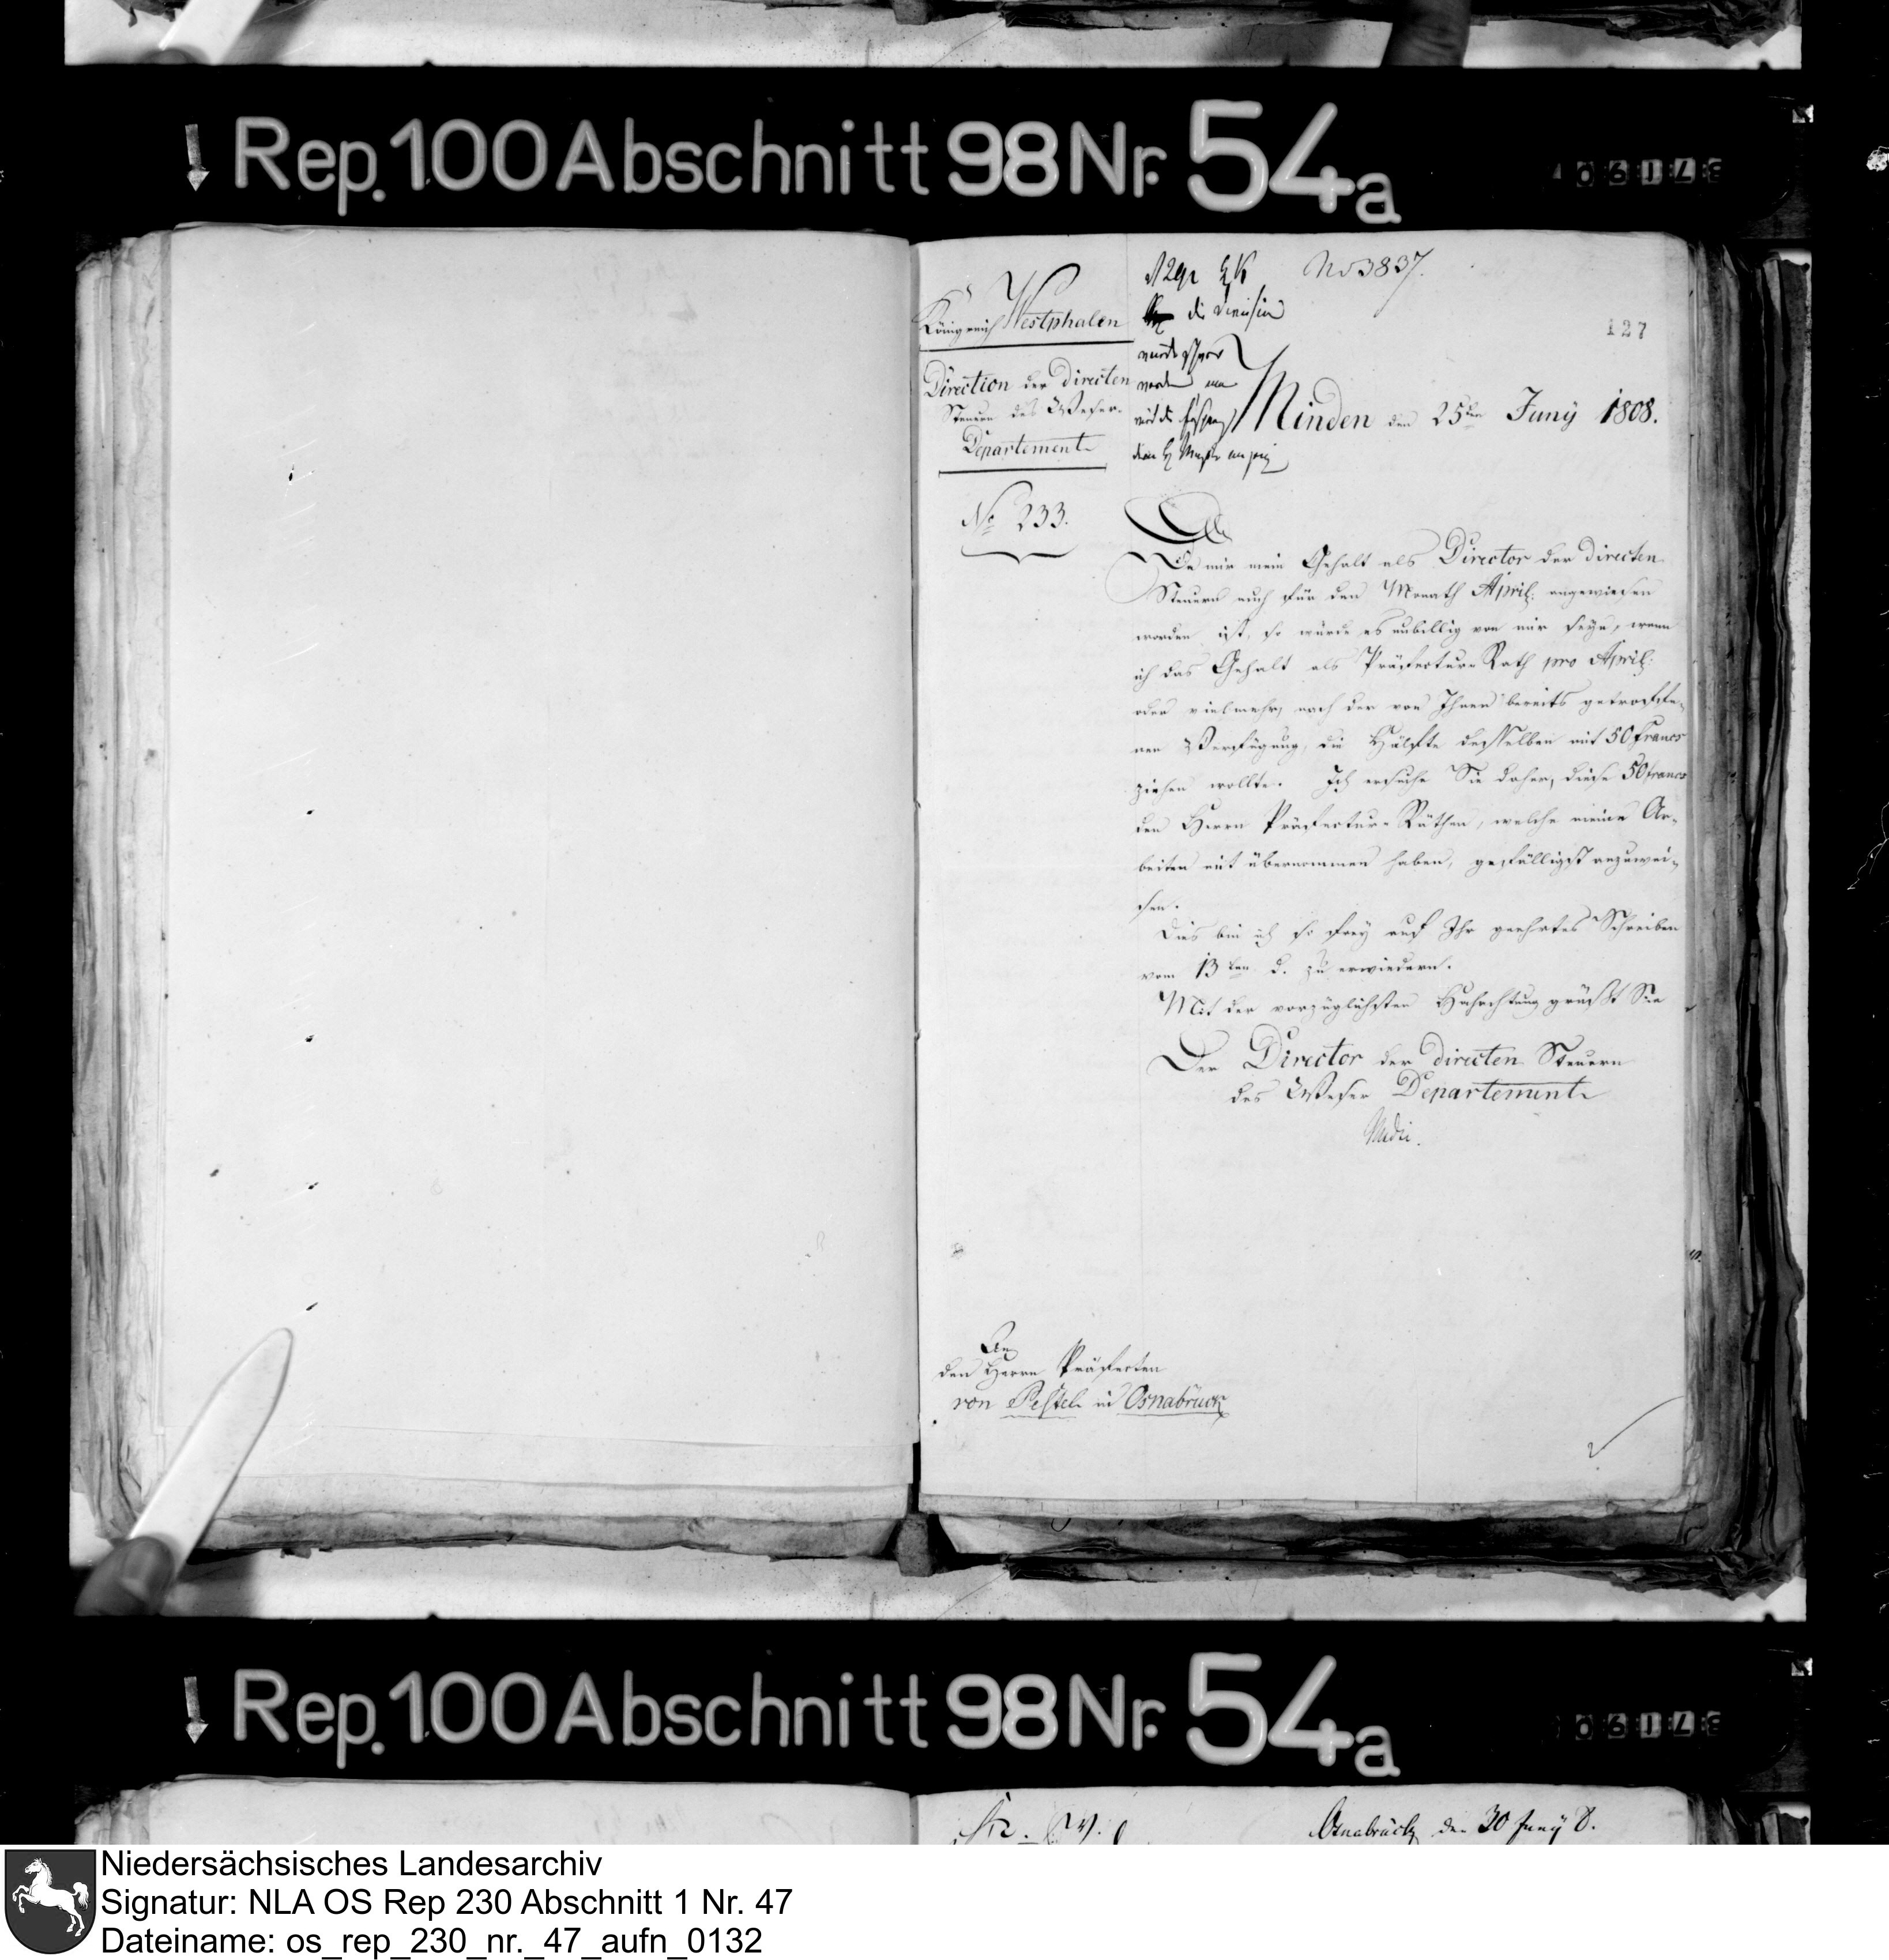 Rep. 100 Abschnitt 98 Nr. 54a
No 3837.
127
Königreich Westphalen
die Revision
Direction der directen
Steuern des Weser-
Departement
Minden den 25ten Juny 1808.
No 233.
Da mir mein Gehalt als Director der directen
Steuern auch für den Monath April: angewiesen
worden ist, so würde es unbillig von mir seyn, wenn
ich das Gehalt als Präfectur-Rath pro April:
oder vielmehr, nach der von Ihnen bereits getroffe-
nen Verfügung, die Hälfte desselben mit 50 Francs
ziehen wollte. Ich ersuche Sie daher, diese 50 francs
den Herrn Präfectur-Räthen, welche meine Ar-
beiten mit übernommen haben, gefälligst anzuwei-
sen.
Dies bin ich so frey auf Ihr geehrtes Schreiben
vom 13ten d. zu erwiedern.
Mit der vorzüglichsten Hochachtung grüßt Sie
Der Director der directen Steuern
des Weser Departements
An
den Herrn Präfecten
von Pestel in Osnabrück
Rep. 100 Abschnitt 98 Nr. 54a
Osnabrück den 30 Juny 8.
Niedersächsisches Landesarchiv
Signatur: NLA OS Rep 230 Abschnitt 1 Nr. 47
Dateiname: os_rep_230_nr._47_aufn_0132